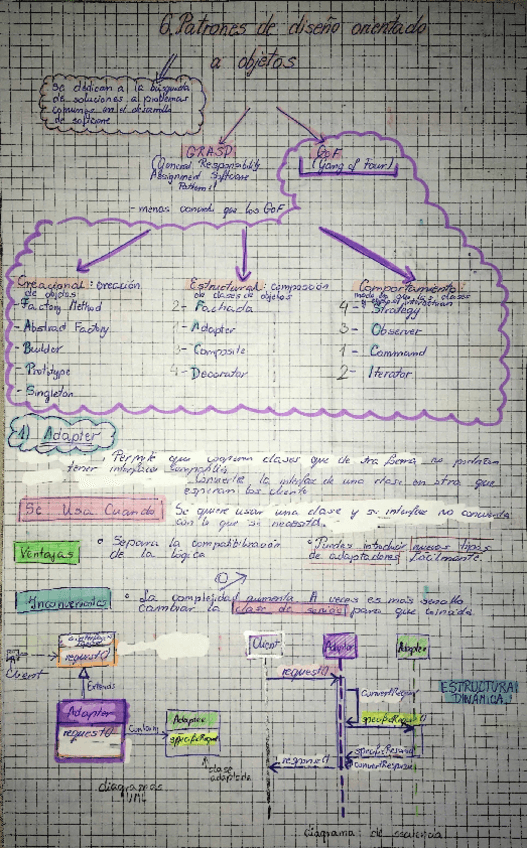 6. Patrones de diseño orientado
a objetos
Se dedican a la búsqueda
de soluciones a problemas
comunes en el desarrollo
de software
GRASP
(General Responsibility
Assignment Software
Patterns)
- menos conocido que los GoF
GoF
(Gang of Four)
Creacional: creación
de objetos
- Factory Method
- Abstract Factory
- Builder
- Prototype
- Singleton
Estructural: composición
de clases de objetos
2- Fachada
1- Adapter
3- Composite
4- Decorator
Comportamiento:
modo en que las clases
4- Strategy
3- Observer
1- Command
2- Iterator
1) Adapter
Permite que cooperen clases que de otra forma no podrían
tener interfaces compatible
Convierte la interfaz de una clase en otra que
esperan los cliente
Se Usa Cuando
Se quiere usar una clase y su interfaz no concuerda
con lo que se necesita.
Ventajas
• Separa la compatibilización
de la lógica
• Puedes introducir nuevos tipos
de adaptadores fácilmente.
Inconveniente
• La complejidad aumenta. A veces es más sencillo
cambiar la clase de servicio para que
request()
Client
Extends
Adapter
request()
Contains
Adaptee
specificRequest
clase
adaptada
diagramas
UML
Client
Adapter
Adaptee
request()
convertRequest
specificRequest()
specificResponse
convertResponse
response()
ESTRUCTURA
DINÁMICA
diagrama de secuencia